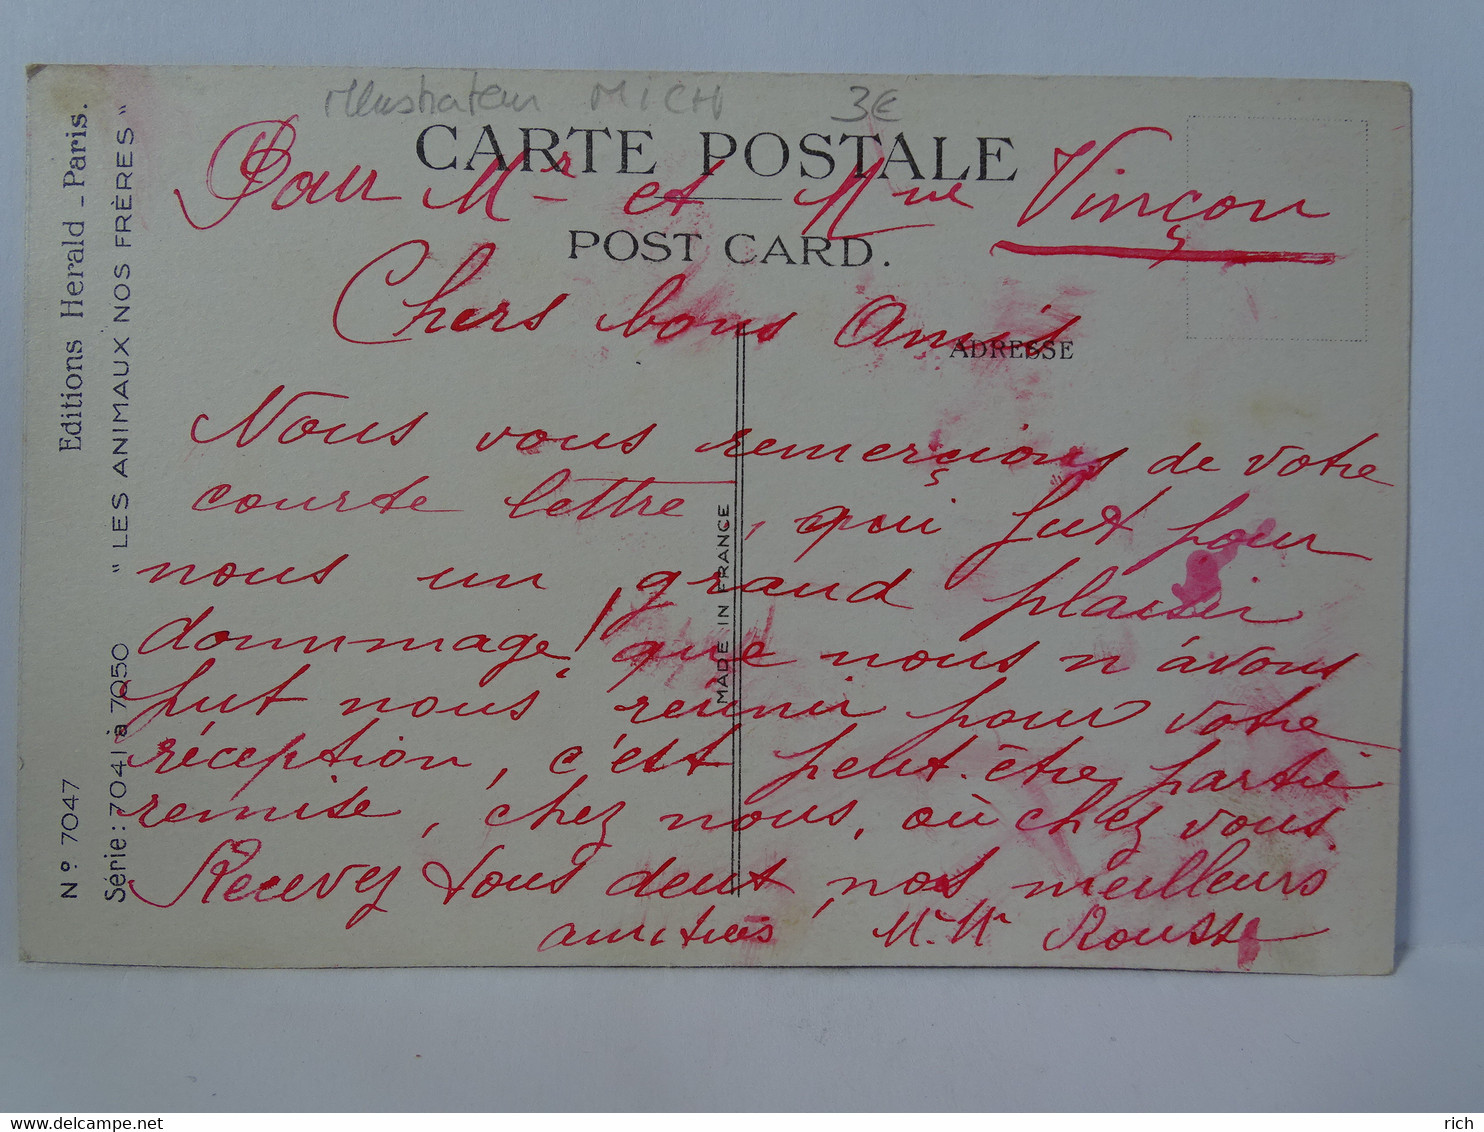 illustrateur MICH 3€
CARTE POSTALE
Pour Mr et Mme Vinçon
POST CARD.
Chers bons Amis
ADRESSE
Nous vous remerçions de votre
courte lettre, qui fut pour
nous un grand plaisir
dommage! que nous n'avons
put nous réunir pour votre
réception, c'est peut-être partie
remise, chez nous, où chez vous.
Recevez tous deux, nos meilleurs
amitiés M. Mr
MADE IN FRANCE
Editions Herald _ Paris.
" LES ANIMAUX NOS FRÈRES "
Nº 7047
Série: 7041 à 7050
rich